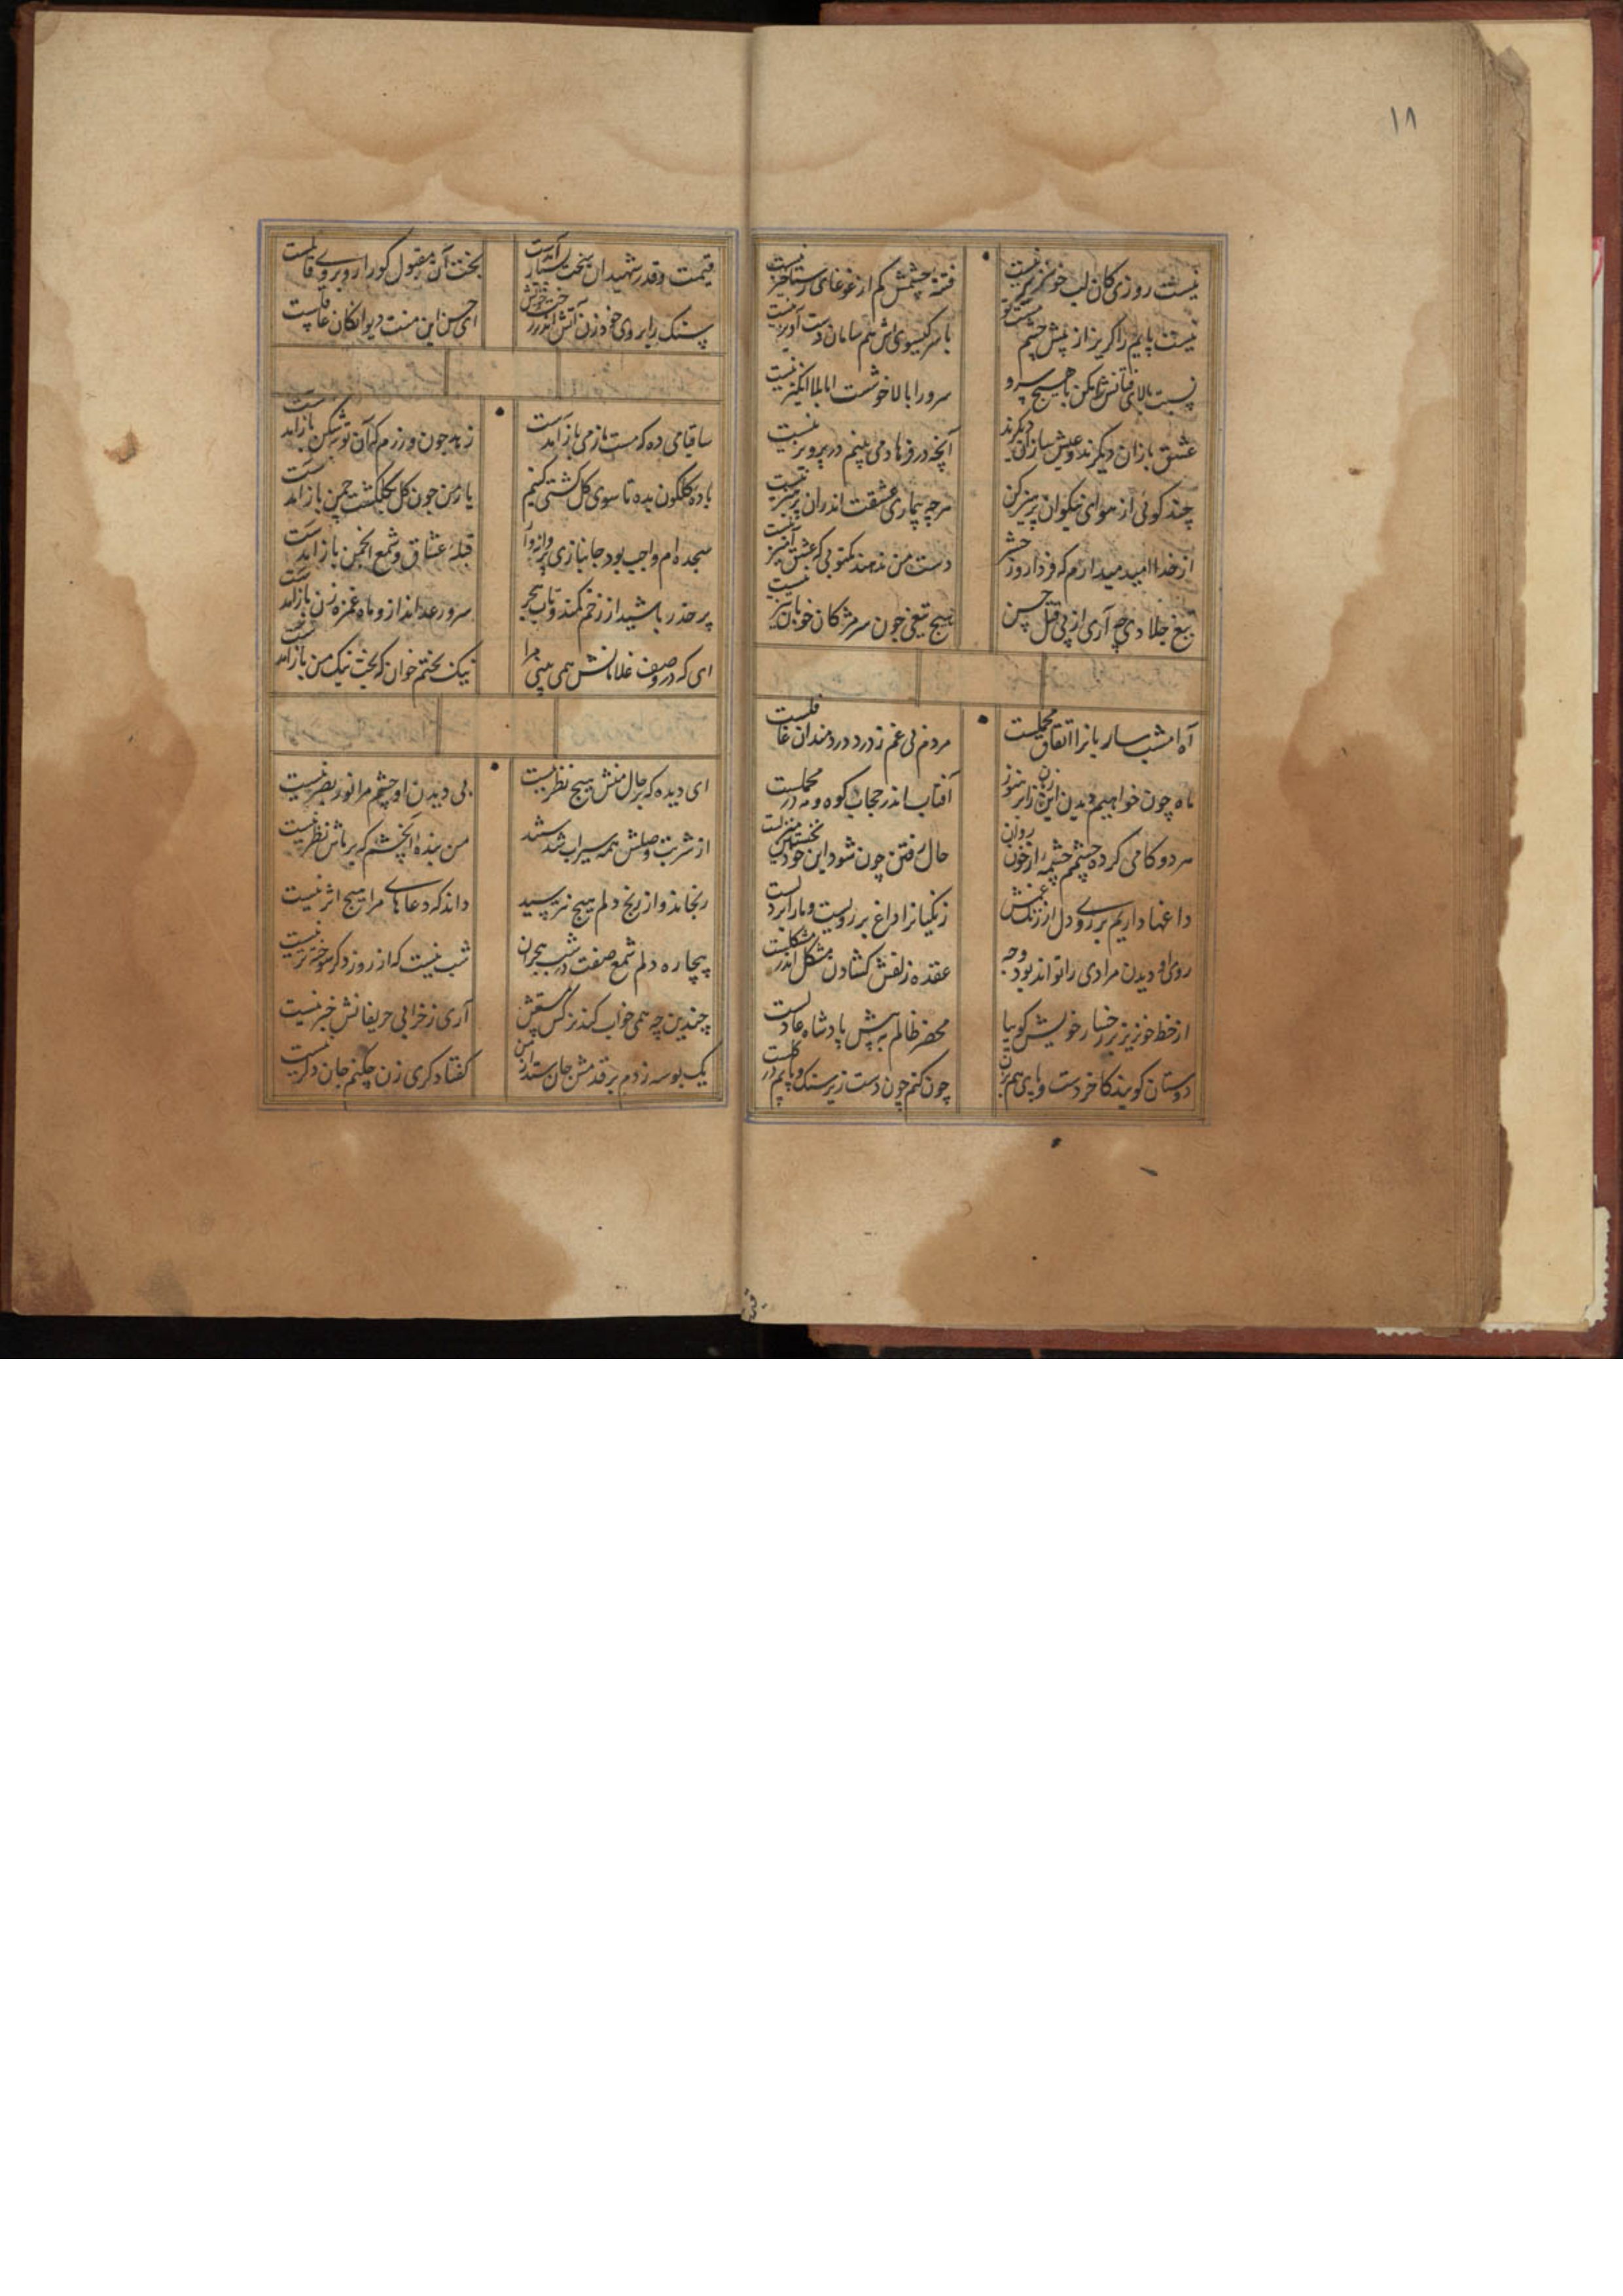 ۱۸
نیست روزی کان لب خونریز نیست
فتنه چشمش کم از غوغای رستاخیز نیست
نیست پایم را گریز از پیش چشم مست تو
با سر کیسوی اش هم سامان دست آویز نیست
نسبت بالای فتانش مکن با هیچ سرو
سرو را بالا خوشست اما بلا انگیز نیست
عشق بازان دیگرند و عیش سازان دیگرند
آنچه در فرهاد می بینم در پرویز نیست
چند کوئی از هوای نیکوان پرهیز کن
هرچه بیماری عشقت اندران پرهیز نیست
از خدا امید میدارم که فردا روز حشر
دست من ندهند مکتوبی که عشق آمیز نیست
تیغ جلادی چه آری از پی قتل حسن
هیچ تیغی چون سر مژکان خوبان تیز نیست
آه امشب ساربانرا اتفاق محملست
مردم بی غم ز درد دردمندان غافلست
ماه چون خواهیم دیدن این زمان زابر هنوز
آفتاب اندر حجاب کوه و مه در محملست
هر دو کامی کرده چشمم چشمه از خون روان
حال رفتن چون شود این خود نخستین منزلست
داغها داریم بر روی دل از زنک غمش
زنکیانرا داغ بر رویست و مارا بر دلست
روی او دیدن مرادی را تواند بود وجه
عقده زلفش کشادن مشکل اندر مشکلست
از خط خونریز بر رخسار خویش کو بیا
محضر ظالم به پیش پادشاه عادلست
دوستان کویند کاخر دست و پای هم بزن
چون کنم چون دست زیر سنک و پایم در کلست
قیمت و قدر شهیدان سخت بسیار آمدست
بخت آن مقبول کو را رو بروی قاتلست
سنک را بر روی خود زن آتش اندر رخت خویش
ای حسن این منت دیوانکان عاقلست
ساقیا می ده که مست نازمی باز آمدست
زهد چون ورزم که آن توبه شکن باز آمدست
باده کلکون بده تا سوی کل کشتی کنیم
یار من چون کل بکلکشت چمن باز آمدست
سجده ام واجب بود جانبازی پروانه وار
قبله عشاق و شمع انجمن باز آمدست
پر حذر باشید از زخم کمند و تاب هجر
سرو رعد انداز و ماه غمزه زن باز آمدست
ای که در وصف غلامانش همی بینی مرا
نیک بختم خوان که بخت نیک من باز آمدست
ای دیده که بر حال منش هیچ نظر نیست
بی دیدن او چشم مرا نور بصر نیست
از شربت وصلش همه سیراب شدستند
من بنده آنچشم که بر ماش نظر نیست
رنجاند و از رنج دلم هیچ نپرسید
داند که دعاهای مرا هیچ اثر نیست
بیچاره دلم شمع صفت در شب هجران
شب نیست که از روز دکر سوخته تر نیست
چندین چه همی خواب کند نرکس مستش
آری ز خرابی حریفانش خبر نیست
یک بوسه زدم بر قدمش جان ستد از من
کفتا دکری زن چکنم جان دکر نیست